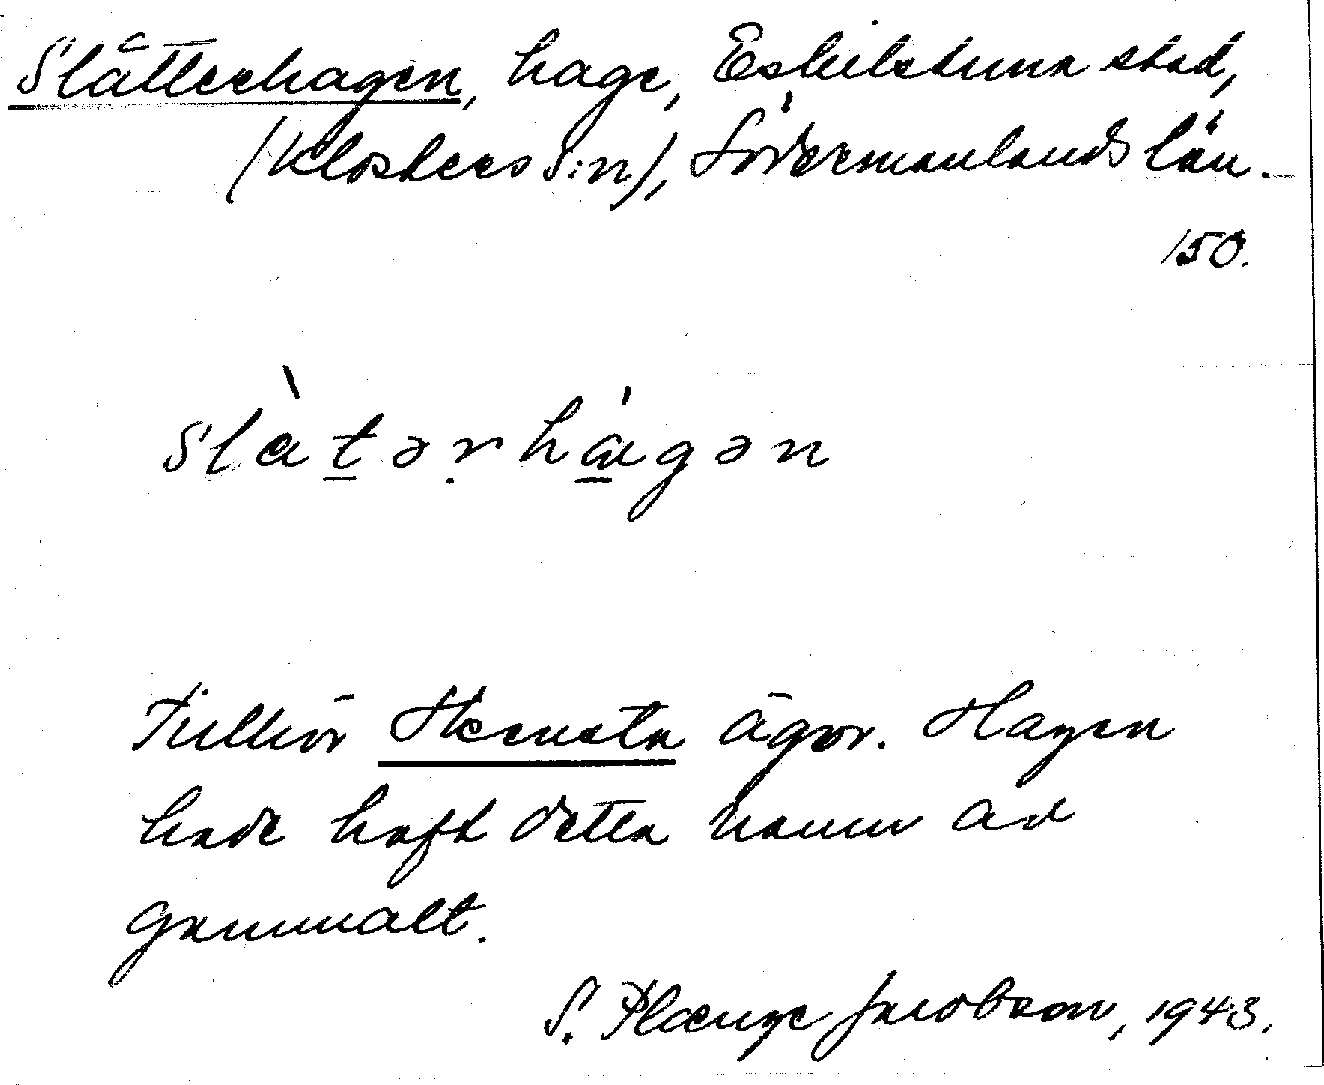 Slåtterhagen, hage, Eskilstuna stad,
(Klosters S:n), Södermanlands län.
150.
slàt̲əṛhá̲gən
Tillhör Stensta ägor. Hagen
hade haft detta namn av
gammalt.
S. Plænge Jacobson, 1943.